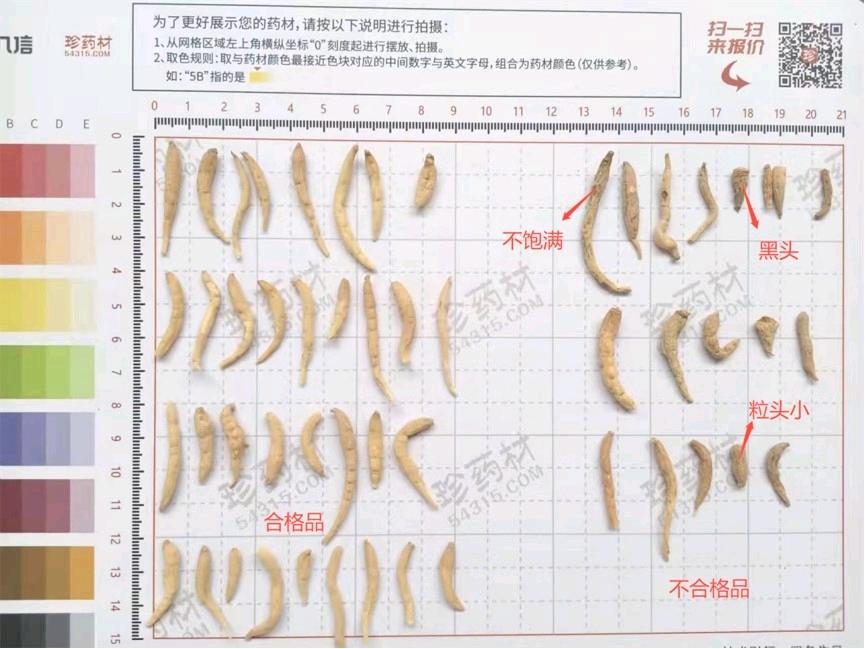 为了更好展示您的药材,请按以下说明进行拍摄：
1、从网格区域左上角横纵坐标“0”刻度起进行摆放、拍摄。
2、取色规则：取与药材颜色最接近色块对应的中间数字与英文字母,组合为药材颜色（仅供参考）。
如：“5B”指的是
珍药材
54315.COM
扫一扫
来报价
B C D E
0 1 2 3 4 5 6 7 8 9 10 11 12 13 14 15 16 17 18 19 20 21
0
1
2
3
4
5
6
7
8
9
10
11
12
13
14
15
不饱满
黑头
珍药材
54315.COM
珍药材
54315.COM
珍药材
54315.COM
粒头小
合格品
珍药材
54315.COM
珍药材
54315.COM
珍药材
54315.COM
不合格品